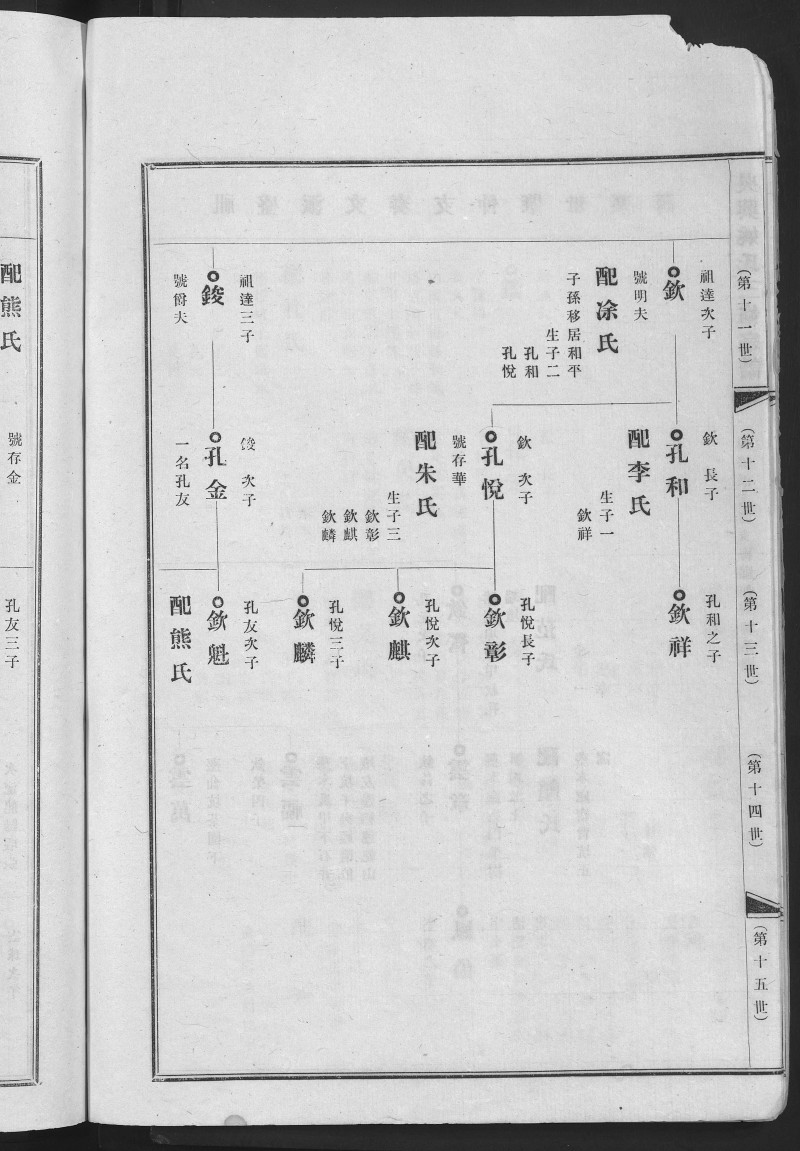 （第十一世）
祖達次子
欽
號明夫
配凃氏
子孫移居和平
生子二
孔和
孔悅
祖達三子
錂
號爵夫
（第十二世）
欽 長子
孔和
配李氏
生子一
欽祥
欽 次子
孔悅
號存華
配朱氏
生子三
欽彰
欽麒
欽麟
錂 次子
孔金
一名孔友
（第十三世）
孔和之子
欽祥
孔悅長子
欽彰
孔悅次子
欽麒
孔悅三子
欽麟
孔友次子
欽魁
配熊氏
（第十四世）
（第十五世）
配熊氏
號存金
孔友三子